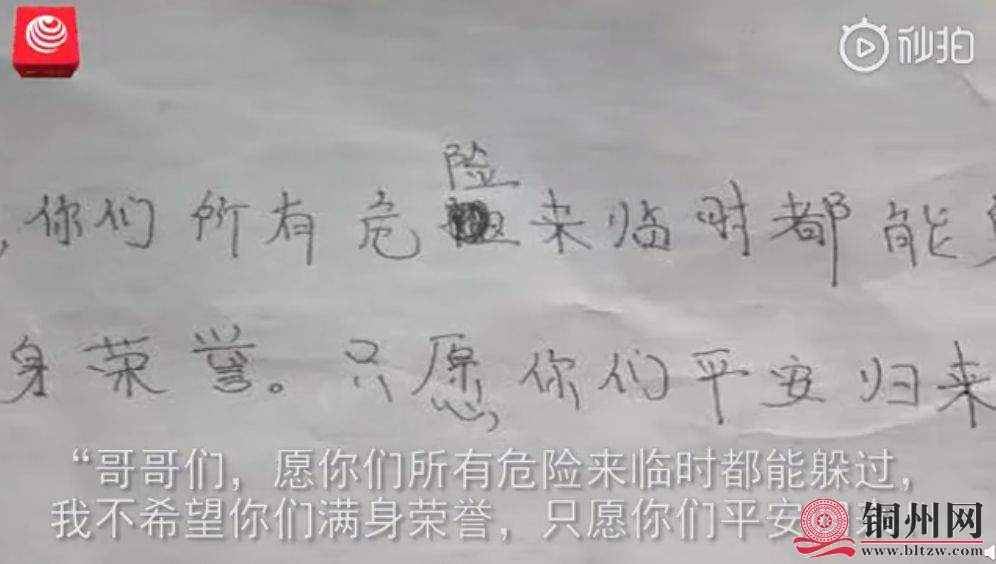 秒拍
险
你们所有危来临时都能
身荣誉。只愿你们平安归来
“哥哥们，愿你们所有危险来临时都能躲过，
我不希望你们满身荣誉，只愿你们平安
铜州网
www.bltzw.com